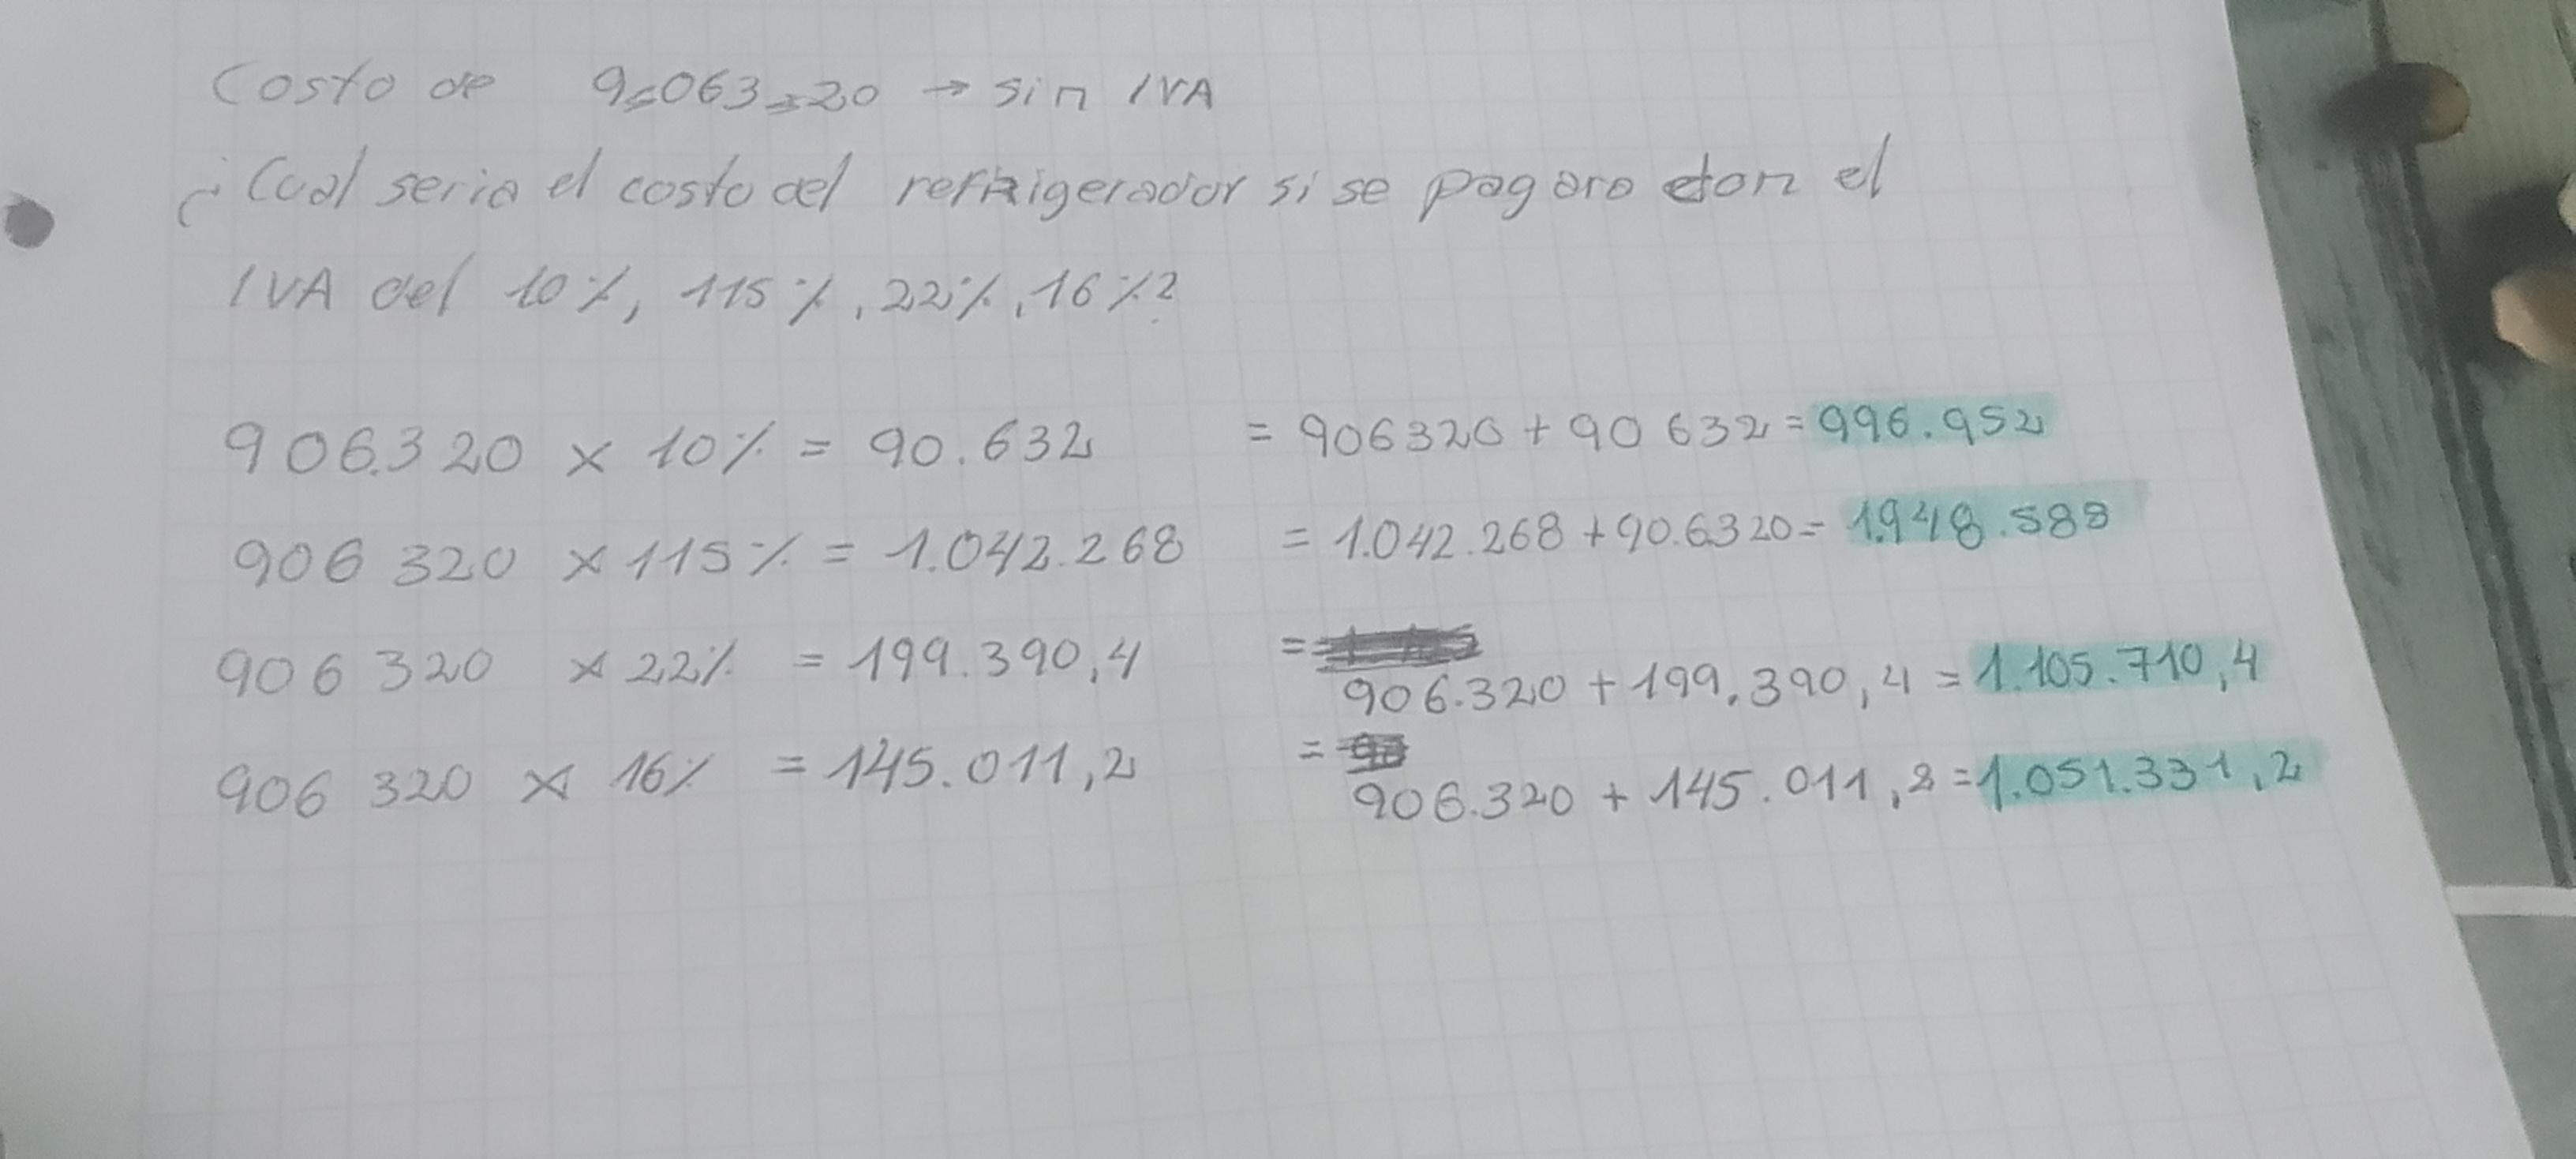 Costo de 9.063.20 → sin IVA
¿Cual seria el costo del refrigerador si se pagara con el
IVA del 10%, 115%, 22%, 16%?
906.320 x 10% = 90.632 = 906320 + 90 632 = 996.952
906 320 x 115% = 1.042.268 = 1.042.268 + 90.6320 = 1.948.588
906 320 x 22% = 199.390,4 = 906.320 + 199.390,4 = 1.105.710,4
906 320 x 16% = 145.011,2 = 906.320 + 145.011,2 = 1.051.331,2